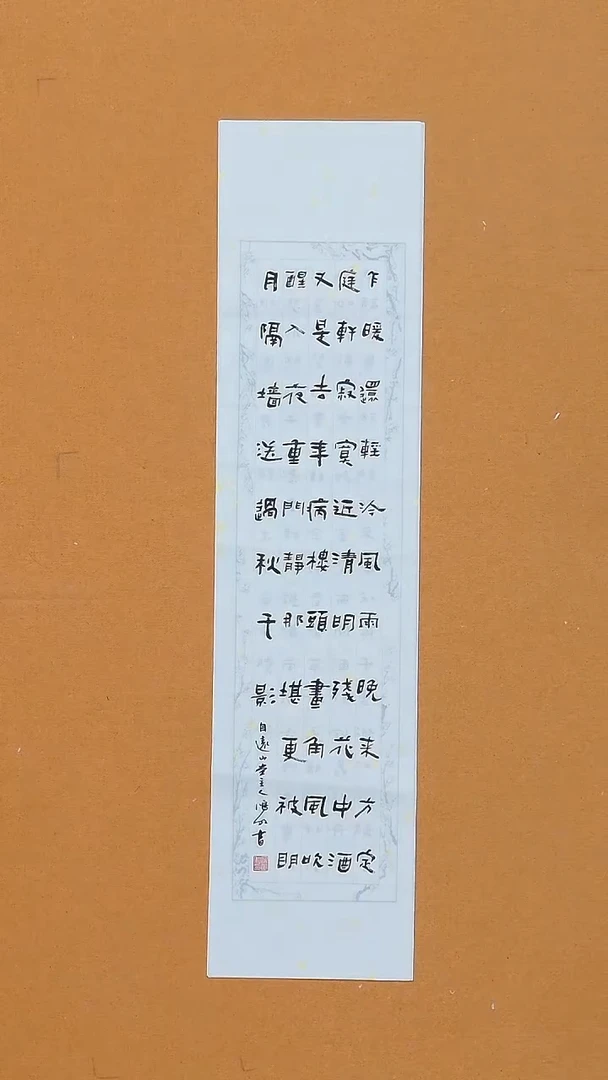 乍暖還輕冷風雨晚来方定
庭軒寂寞近清明殘花中酒
又是去年病樓頭畫角風吹
醒入夜重門靜那堪更被明
月隔墻送過秋千影
自遠山堂主人書